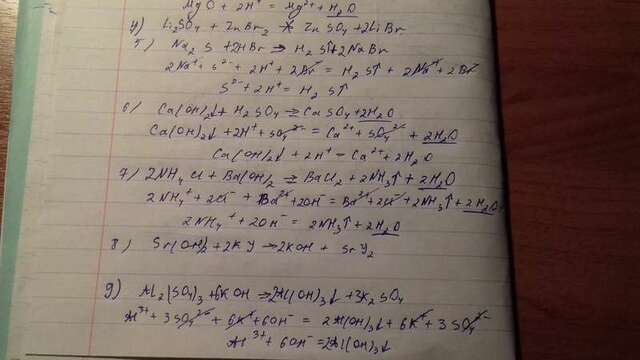 MgO + 2H⁺ = Mg²⁺ + H₂O
4) Li₂SO₄ + ZnBr₂ ↛ ZnSO₄ + 2LiBr
5) Na₂S + 2HBr → H₂S↑ + 2NaBr
2Na⁺ + S²⁻ + 2H⁺ + 2Br⁻ = H₂S↑ + 2Na⁺ + 2Br⁻
S²⁻ + 2H⁺ = H₂S↑
6) Ca(OH)₂↓ + H₂SO₄ ⇄ CaSO₄ + 2H₂O
Ca(OH)₂↓ + 2H⁺ + SO₄²⁻ = Ca²⁺ + SO₄²⁻ + 2H₂O
Ca(OH)₂↓ + 2H⁺ = Ca²⁺ + 2H₂O
7) 2NH₄Cl + Ba(OH)₂ ⇄ BaCl₂ + 2NH₃↑ + 2H₂O
2NH₄⁺ + 2Cl⁻ + Ba²⁺ + 2OH⁻ = Ba²⁺ + 2Cl⁻ + 2NH₃↑ + 2H₂O
2NH₄⁺ + 2OH⁻ = 2NH₃↑ + 2H₂O
8) Sr(OH)₂ + 2KY → 2KOH + SrY₂
9) Al₂(SO₄)₃ + 6KOH → 2Al(OH)₃↓ + 3K₂SO₄
Al³⁺ + 3SO₄²⁻ + 6K⁺ + 6OH⁻ = 2Al(OH)₃↓ + 6K⁺ + 3SO₄²⁻
Al³⁺ + 6OH⁻ = 2Al(OH)₃↓